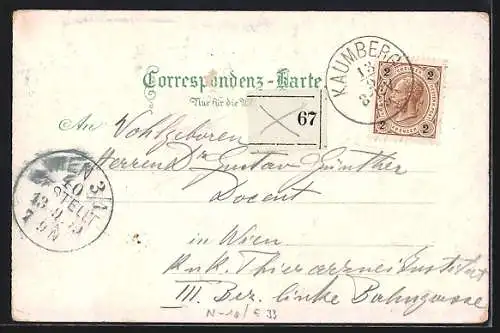 Correspondenz-Karte
Nur für die
67
KAUMBERG
2 2
2 2
An Wohlgeboren
Herrn Dr Gustav Günther
Docent
in Wien
k. u. k. Thierarznei Institut
III. Bez. linke Bahngasse
WIEN 3/1
40
BESTELLT
13.9.99
7.9N
N-10/€ 33